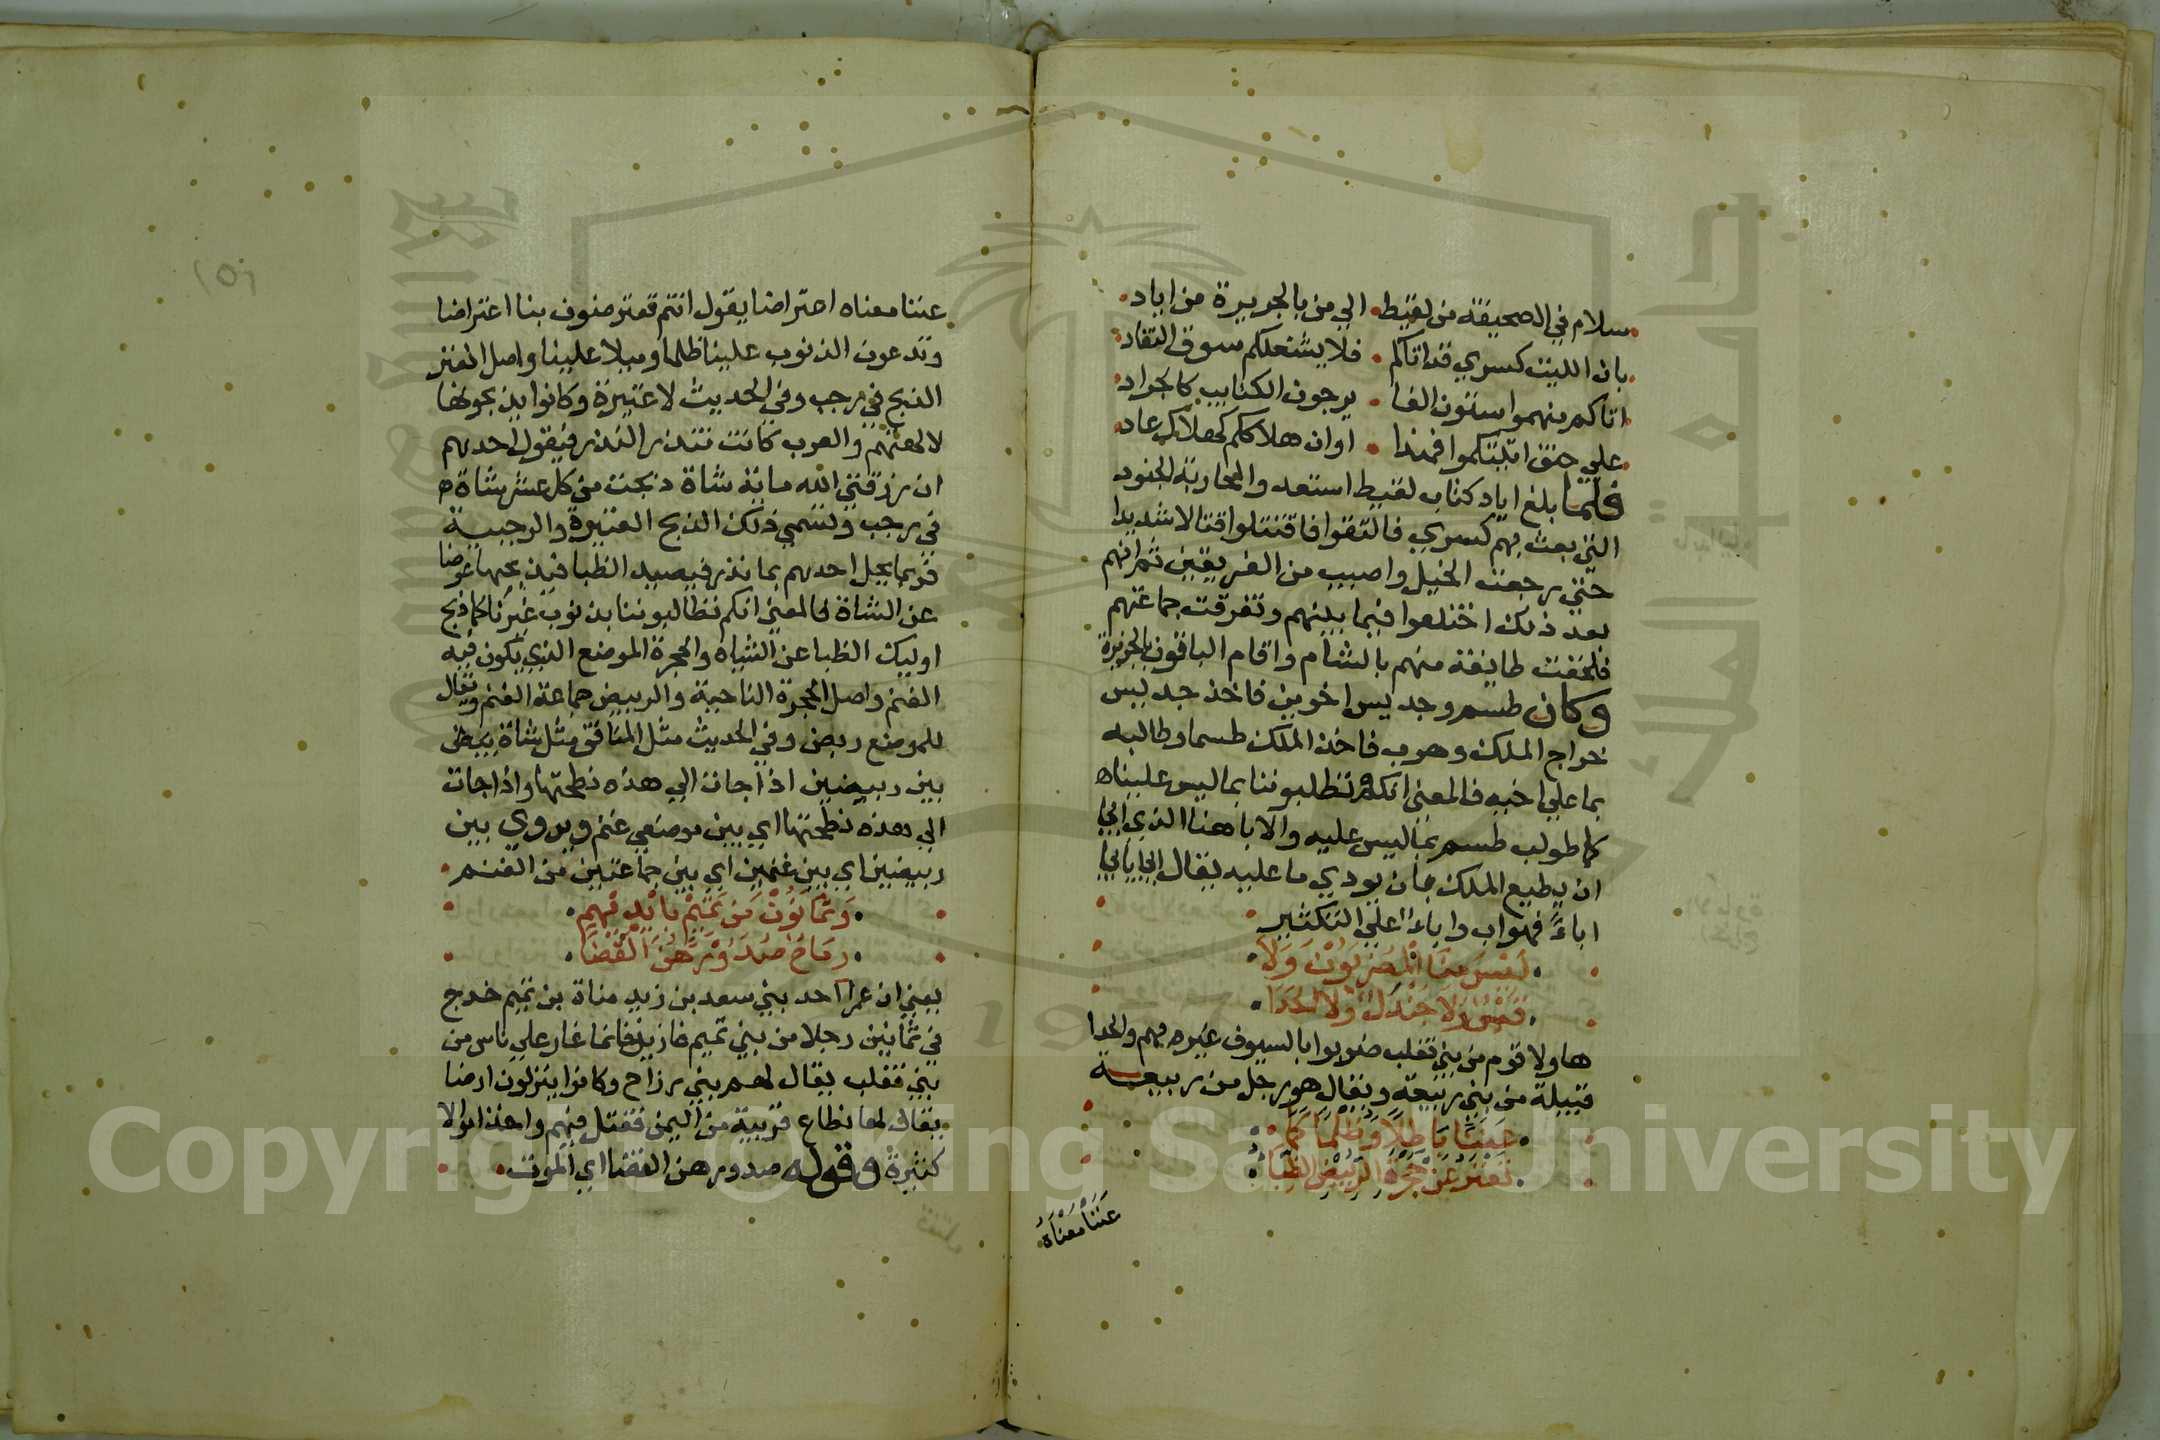 سلام في الصحيفة من لقيط الي من بالجزيرة من اياد
بان الليث كسري قد اتاكم فلا يشغلكم سوق النقاد
اتاكم منهموا ستون الفا يزجون الكتايب كالجراد
علي حنق اتيتكموا فهذا اوان هلاككم كهلاك عاد
فلما بلغ اياد كتاب لقيط استعدوا لمحاربة الجنود
التي بعث بهم كسري فالتقوا فاقتتلوا قتالا شديدا
حتي رجعت الخيل واصيب من الفريقين ثم انهم
بعد ذلك اختلفوا فيما بينهم وتفرقت جماعتهم
فلحقت طايفة منهم بالشام واقام الباقون بالجزيرة
وكان طسم وجديس اخوين فاخذ جديس
خراج الملك وهرب فاخذ الملك طسما وطالبه
بما علي اخيه فالمعني انكم تطلبوننا بما ليس علينا
كما طولب طسم بما ليس عليه والابا هنا الذي ابي
ان يطيع الملك بان يودي ما عليه يقال ابي يابي
اباءً فهو اب واباء علي التكثير
ليس منا المضربون ولا
قيس ولا جندل ولا الحدا
هاولا قوم من بني تغلب ضربوا بالسيوف غيره فهم والحدا
قبيلة من بني ربيعة ويقال هو رجل من ربيعة
عننا باطلا وظلما كما
تعتر عن حجرة الربيض الظبا
عننا معناه
عننا معناه اعتراضا يقول انتم تعترضون بنا اعتراضا
وتدعون الذنوب علينا ظلما وميلا علينا واصل العتر
الذبح في رجب وفي الحديث لا عتيرة وكانوا يذبحونها
لالهتهم والعرب كانت تنذر النذر فيقول احدهم
ان رزقني الله ماية شاة ذبحت من كل عشر شاة
في رجب وتسمي ذلك الذبح العتيرة والرجبية
فربما بخل احدهم بما نذر فيصيد الظبا فيذبحها عوضا
عن الشاة فالمعني انكم تطالبوننا بذنوب غيرنا كما ذبح
اوليك الظبا عن الشياه والحجرة الموضع الذي يكون فيه
الغنم واصل الحجرة الناحية والربيض جماعة الغنم ويقال
للموضع ربض وفي الحديث مثل المنافق مثل شاة
بين ربيضين اذا جات الي هذه نطحتها واذا جات
الي هذه نطحتها اي بين موضعي غنم ويروي بين
ربيضين اي بين غنمين اي بين جماعتين من الغنم
وثمانون من تميم بايديهم
رماح صدورهن القضا
يعني ان عمرا احد بني سعد بن زيد مناة بن تميم خرج
في ثمانين رجلا من بني تميم غازين فاغار علي ناس من
بني تغلب يقال لهم بني رزاح وكانوا ينزلون ارضا
يقال لها نطاع قريبة من اليمن فقتل فيهم واخذ اموالا
كثيرة وقوله صدورهن القضا اي الموت
Copyright © King Saud University